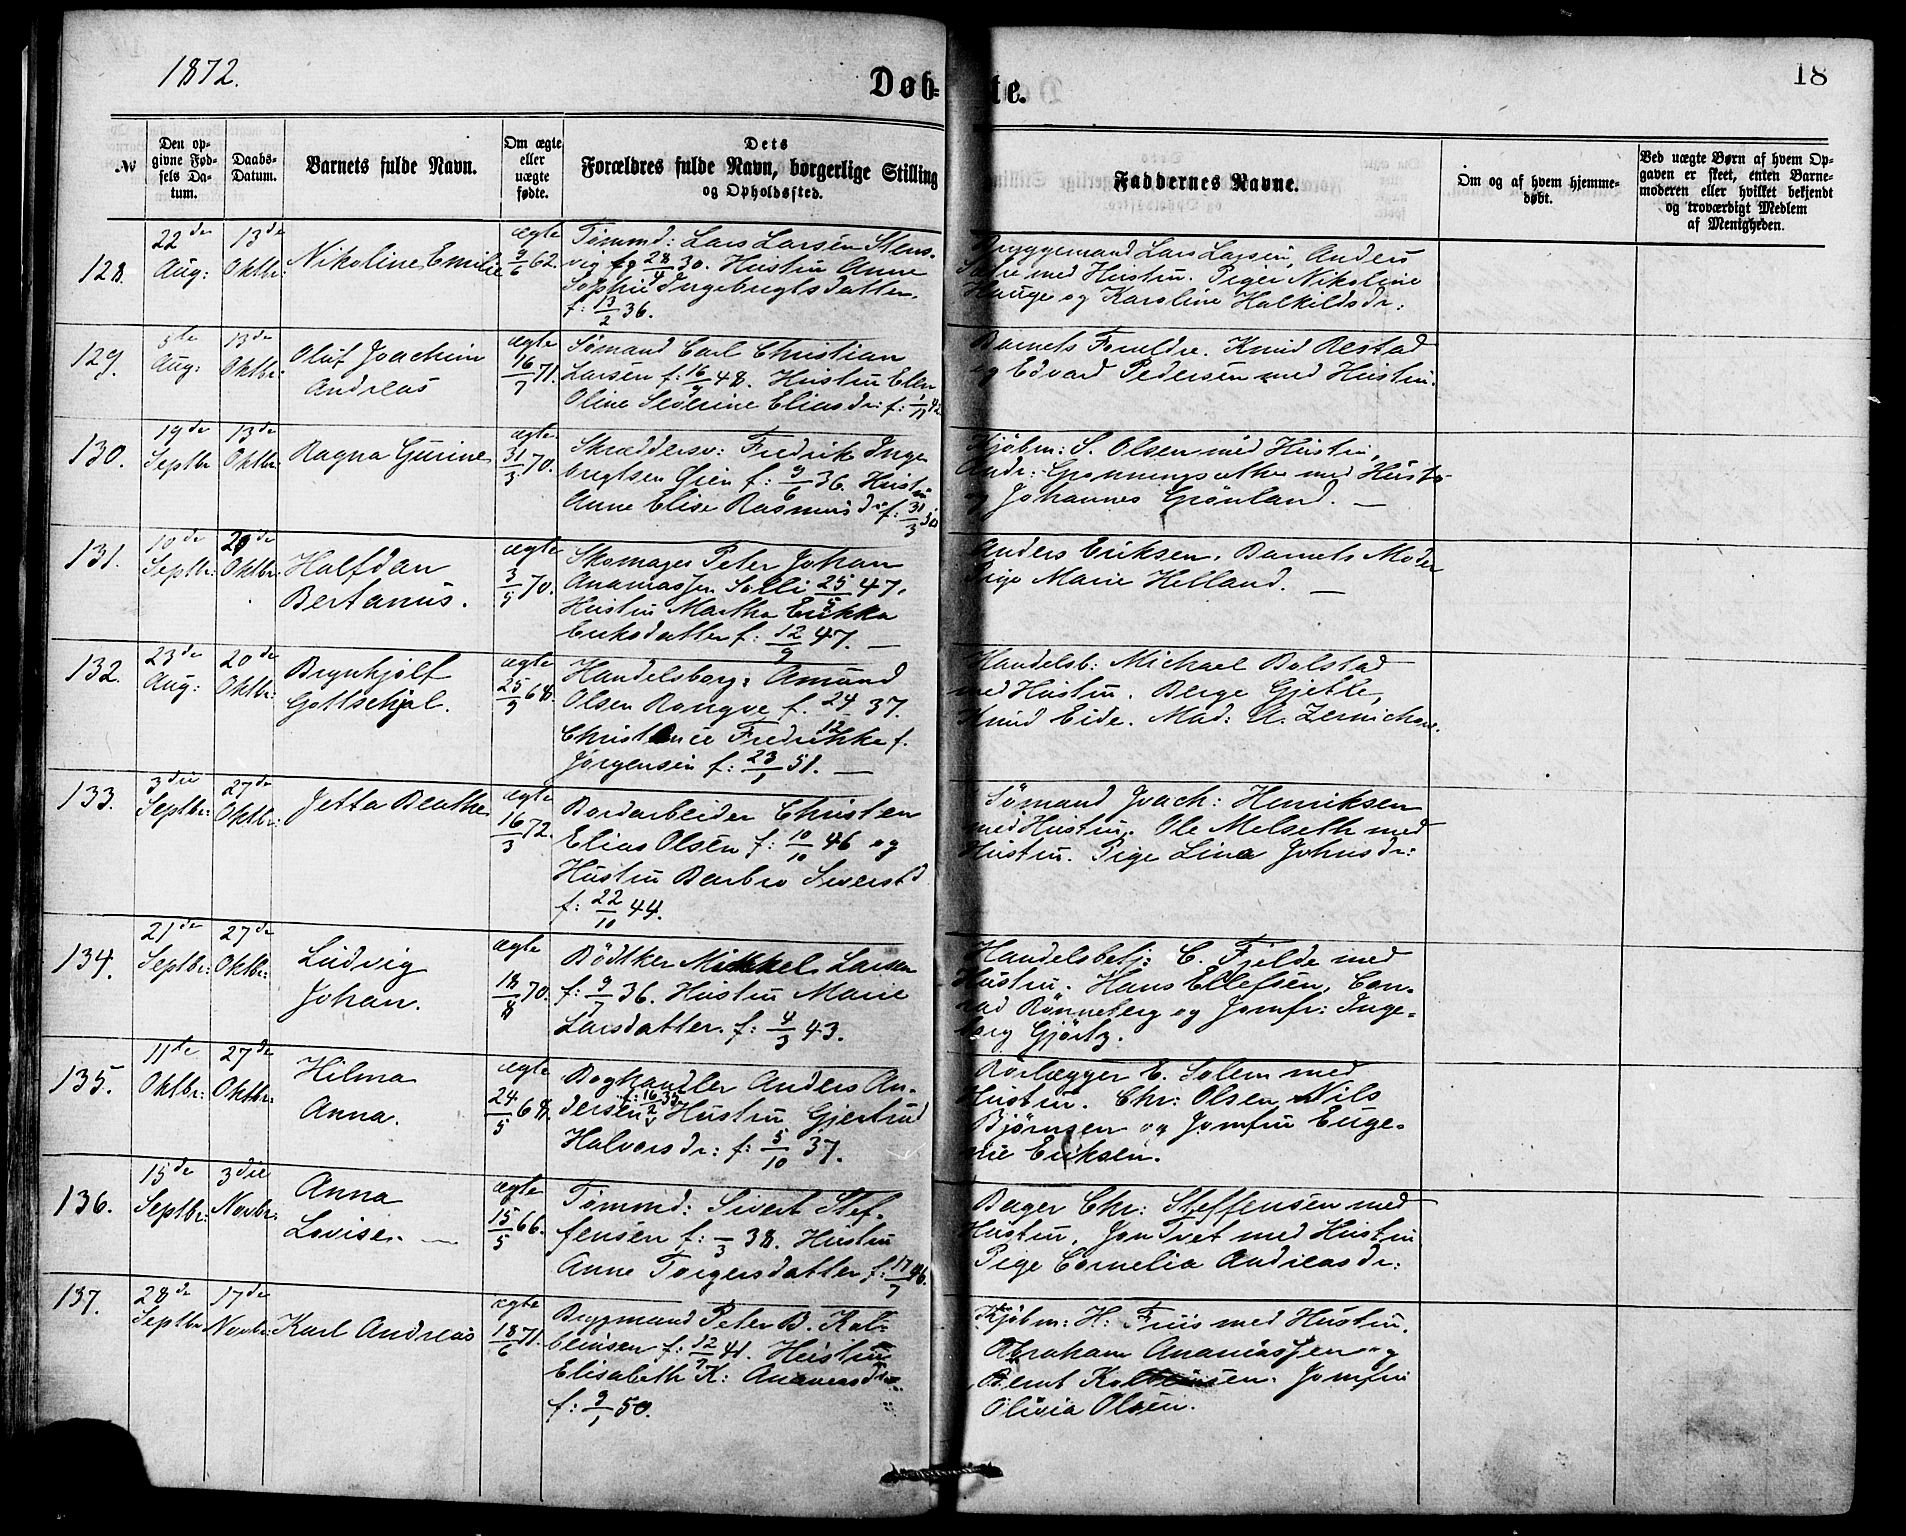 1872.
Døbte.
18
№
Den op-
givne Fød-
sels Da-
tum.
Daabs-
Datum.
Barnets fulde Navn.
Om ægte
eller
uægte
fødte.
Dets
Forældres fulde Navn, borgerlige Stilling
og Opholdssted.
Faddernes Navne.
Om og af hvem hjemme-
døbt.
Ved uægte Børn af hvem Op-
gaven er skeet, enten Barne-
moderen eller hvilket bekjendt
og troværdigt Medlem
af Menigheden.
128.
22de
Aug:
13de
Oktbr:
Nikoline Emilie
ægte
9/6 62.
Tømmd: Lars Larsen Stens-
vig f. 28/4 30. Hustru Anne
Sophie Ingebrigtsdatter.
f: 13/2 36.
Bryggemand Lars Larsen, Anders
med Hustru. Piger Nikoline
Hauge og Karoline Halkildsdr:
129.
5te
Aug:
13de
Oktbr:
Oluf Joachim
Andreas
ægte
16/7 71.
Sømand Carl Christian
Larsen f: 16/9 48. Hustru Elen
Oline Severine Eliasdr: f: 1/11 42
Barnets Forældre. Knud Restad
og Edvard Pedersen med Hustru.
130.
19de
Septbr
13de
Oktbr:
Ragna Gurine
ægte
31/3 70.
Skræddersv: Fredrik Inge
brigtsen Gien f: 9/6 36. Hustru
Anne Elise Rasmusdr: f: 31/3
Kjøbm: S. Olsen med Hustru,
Andr: Grønningsæther med Hustru
og Johannes Grønland. —
131.
10de
Septbr:
20de
Oktbr:
Halfdan
Bertanus.
ægte
3/5 70.
Skomager Peter Johan
Ananiassen Solli 25/5 47.
Hustru Martha Erikka
Eriksdatter f: 12/9 47. —
Anders Eriksen. Barnets Moder
Pige Marie Helland. —
132.
23de
Aug:
20de
Oktbr:
Brynhjolf
Gottschal.
ægte
25/9 68.
Handelsborg: Amund
Olsen Rangve f. 24/12 37.
Christence Fredrikke f.
Jørgensen f: 23/1 51. —
Handelsb: Michael Bolstad
med Hustru. Berge Gjelle,
Knud Eide. Mad: A. Zernichow.
133.
3die
Septbr:
27de
Oktbr:
Jetta Beathe
ægte
16/3 72.
Bordarbeider Christen
Elias Olsen f: 10/10 46 og
Hustru Barbro Siversd
f: 22/10 44.
Sømand Joach: Henriksen
med Hustru. Ole Melseth med
Hustru. Pige Lina Johnsdr:
134.
21de
Septbr:
27de
Oktbr:
Ludvig
Johan.
ægte
18/8 70.
Bødtker Mikkel Larsen
f: 9/7 36. Hustru Marie
Larsdatter. f: 4/3 43.
Handelsbetj: C. Fjelde med
Hustru. Hans Ellefsen, Con-
rad Rønneberg og Jomfr: Inge-
borg Gjørtz.
135.
11te
Oktbr:
27de
Oktbr:
Hilma
Anna.
ægte
24/5 68.
Boghandler Anders An-
dersen f: 16/2 35 Hustru Gjertrud
Halvorsdr: f: 5/10 37.
Rørlægger E. Solem med
Hustru. Chr: Olsen Nils
Bjørnsen og Jomfru Euge-
nie Eriksen.
136.
15de
Septbr:
3die
Novbr:
Anna
Lovise. —
ægte
15/5 66.
Tømmd: Sivert Stef-
fensen f: —/3 38. Hustru
Anne Torgersdatter f: 17/7 46.
Bager Chr: Steffensen med
Hustru, Jon Tvet med Hustru
Pige Cornelia Andreasdr:
137.
28de
Septbr
17de
Novbr:
Karl Andreas
ægte
18/6 71.
Bryggmand Peter B. Kol-
beinsen f: 12/9 41. Hustru
Elisabeth K:
f: 9/1 50.
Kjøbm: H: Friis med Hustru.
Abraham Ananiassen og
Bernt Kolbeinsen. Jomfru
Olivia Olsen.